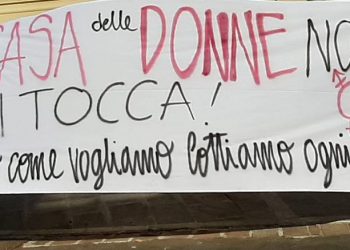 CASA delle DONNE NO
I TOCCA!
come vogliamo lottiamo ogni